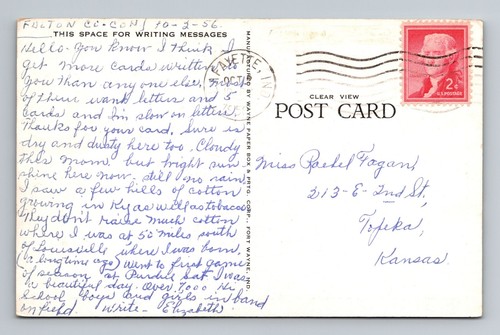 FULTON CO-CON/ 10-3-56.
THIS SPACE FOR WRITING MESSAGES
Hello- You know I think I
get more cards written to
you than anyone else, most
of them want letters and 5
cards and I'm slow on letters.
Thanks for your card. Sure is
dry and dusty here too. Cloudy
this morn. but bright sun
shine here now. still no rain.
I saw a few hills of cotton
growing in Ky as well as tobacco.
They don't raise much cotton
where I was at 50 miles south
of Louisville where I was born,
(a long time ago) Went to first game
of season at Purdue Sat. was
a beautiful day. Over 9,000 Hi
School boys and girls in band
on field. Write- Elizabeth.
MANUFACTURED BY WAYNE PAPER BOX & PRTG. CORP., FORT WAYNE, IND.
FAYETTE, IND
OCT
CLEAR VIEW
POST CARD
2¢
U.S. POSTAGE
Miss Rachel Fagan,
213-E-2nd St,
Topeka,
Kansas.